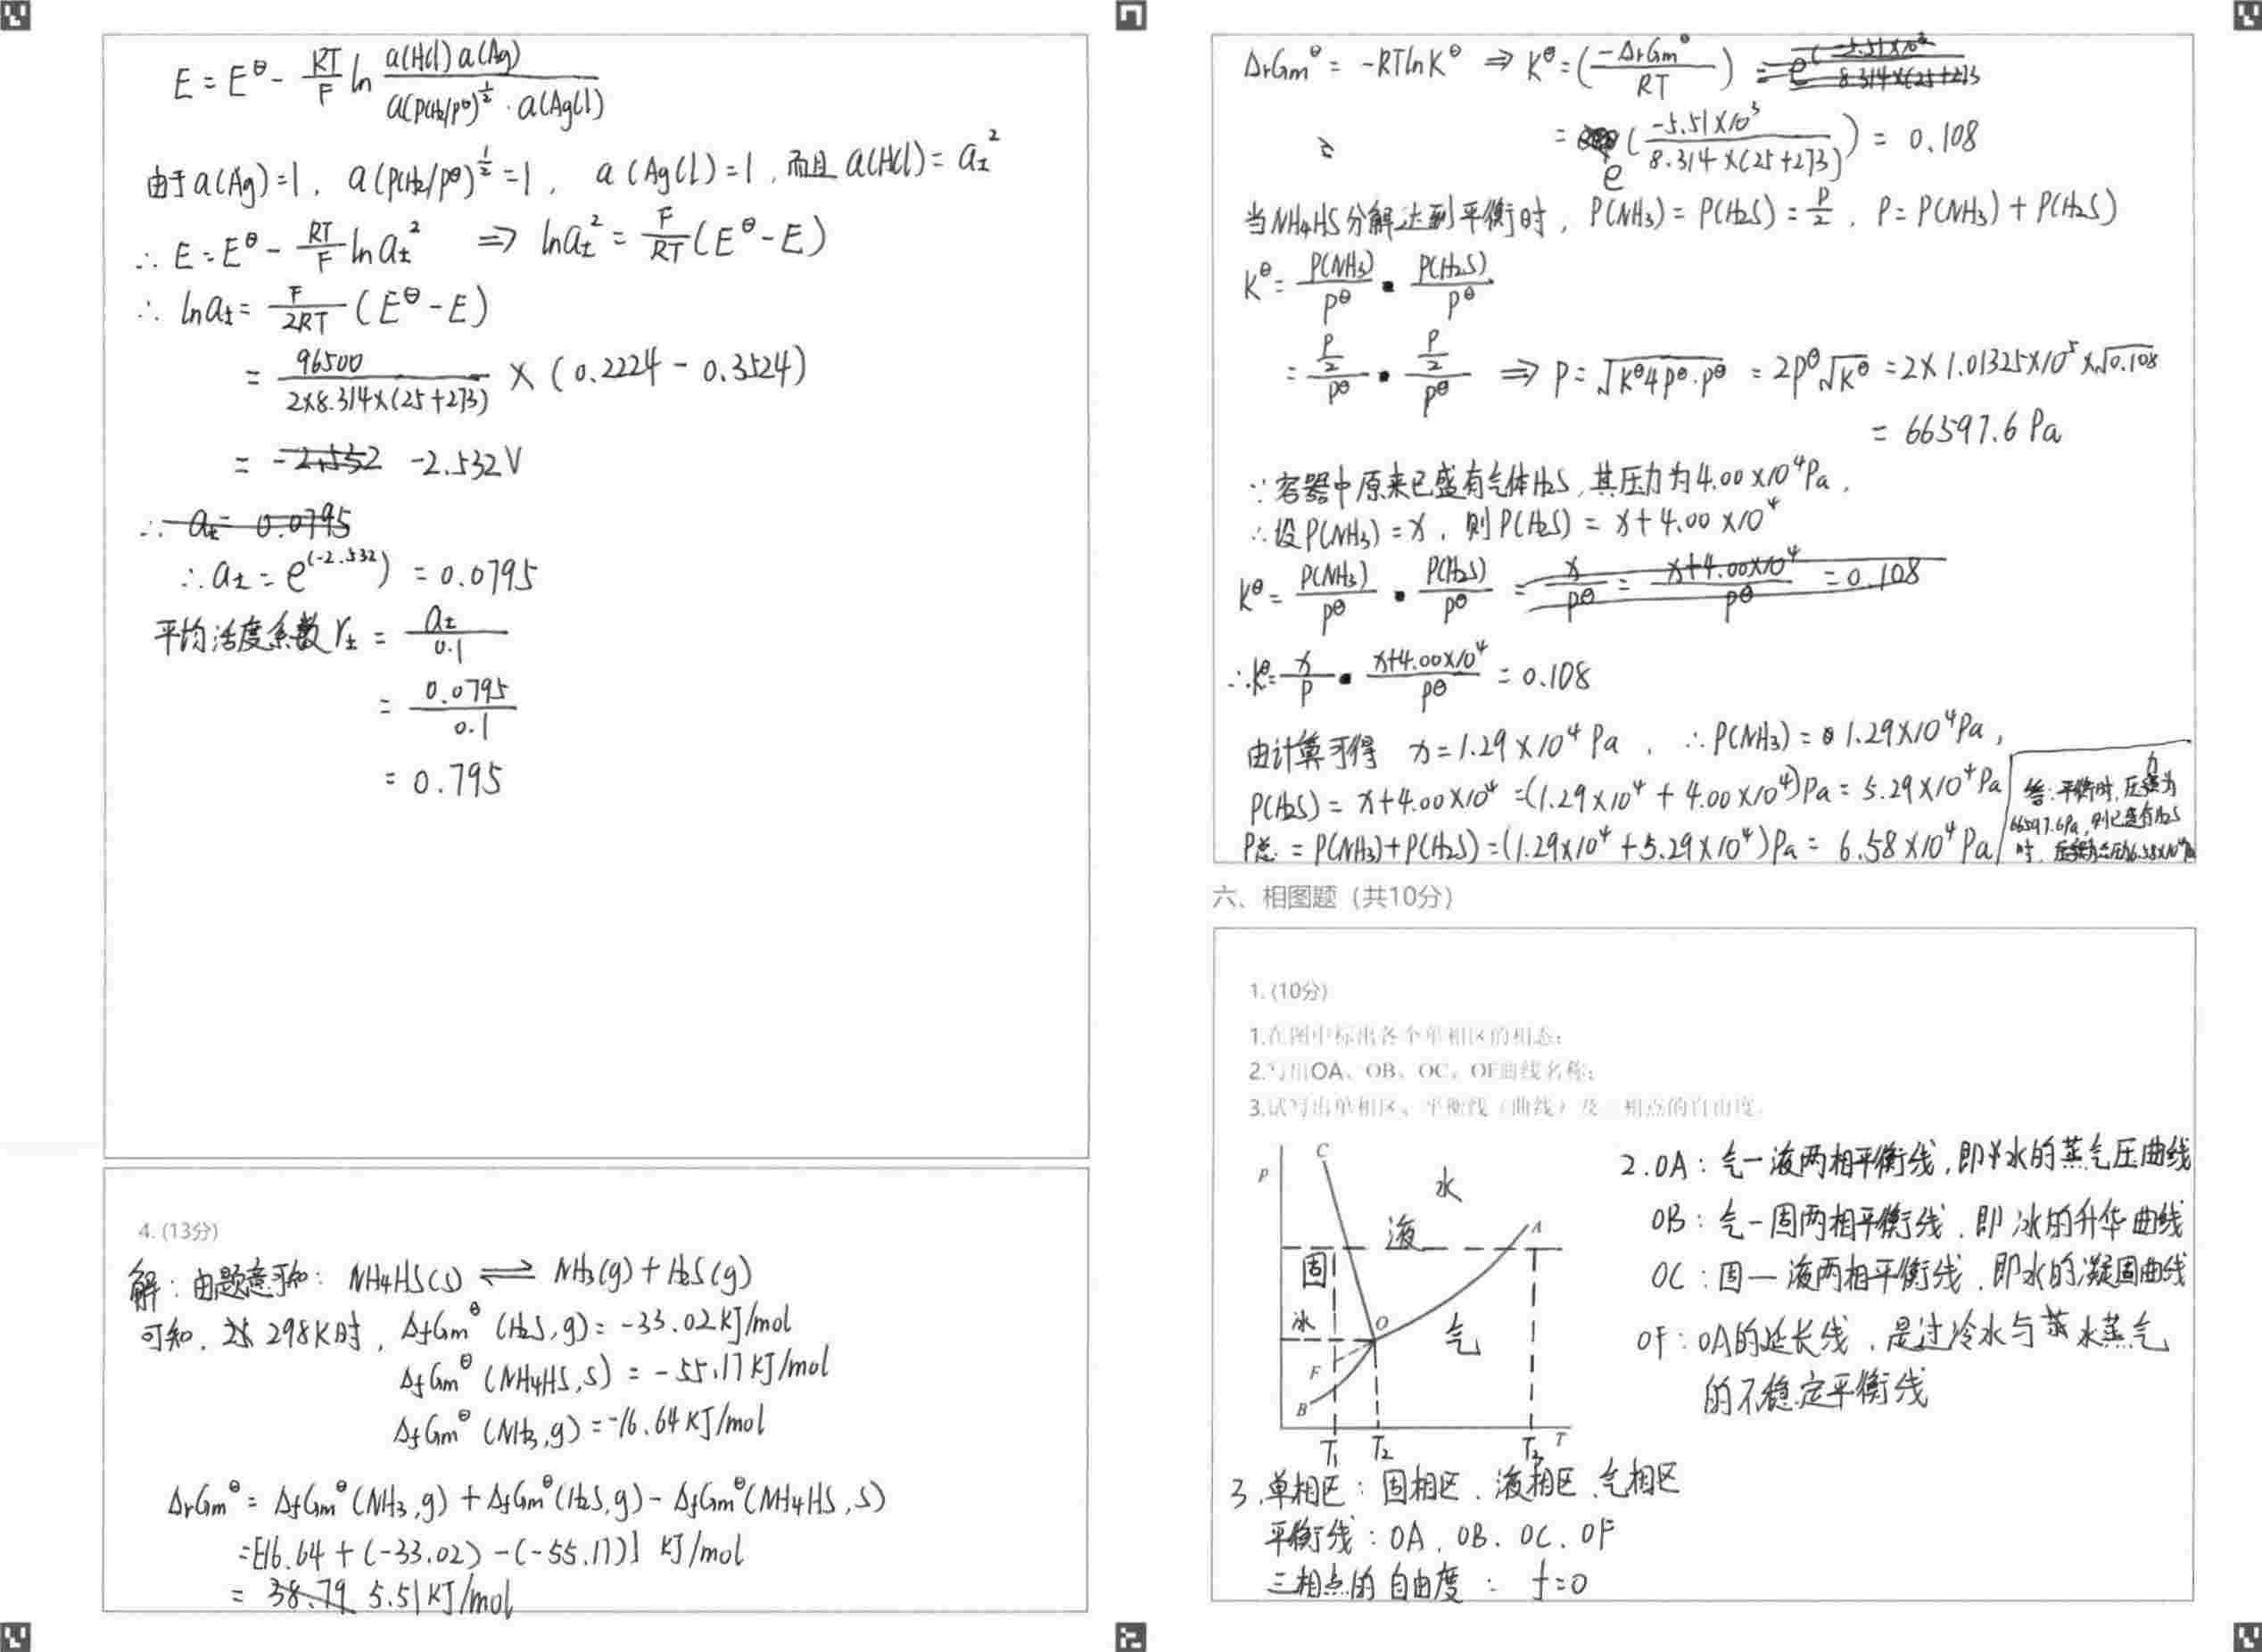 E = E^θ - RT/F ln a(HCl) a(Ag) / a(P(H₂/P^θ)^½ · a(AgCl)
由于 a(Ag)=1, a(P(H₂/P^θ)^½ =1, a(AgCl)=1, 而且 a(HCl)= a±²
∴ E = E^θ - RT/F ln a±² ⇒ ln a±² = F/RT (E^θ - E)
∴ ln a± = F/2RT (E^θ - E)
= 96500 / 2×8.314×(25+273) × (0.2224 - 0.3524)
= -2.532 -2.532V
∴ a± = 0.0795
∴ a± = e^(-2.532) = 0.0795
平均活度系数 γ± = a±/0.1
= 0.0795/0.1
= 0.795
4. (13分)
解: 由题意可知: NH₄HS(s) ⇌ NH₃(g) + H₂S(g)
可知. 298K时, ΔfGm^θ (H₂S,g) = -33.02 KJ/mol
ΔfGm^θ (NH₄HS,s) = -55.17 KJ/mol
ΔfGm^θ (NH₃,g) = -16.64 KJ/mol
ΔrGm^θ = ΔfGm^θ(NH₃,g) + ΔfGm^θ(H₂S,g) - ΔfGm^θ(NH₄HS,s)
=[-16.64 + (-33.02) - (-55.17)] KJ/mol
= 38.79 5.51 KJ/mol
ΔrGm^θ = -RTlnK^θ ⇒ K^θ = (-ΔrGm^θ/RT) = e^(-5.51×10³/8.314×(25+273
= e^(-5.51×10³/8.314×(25+273)) = 0.108
当NH₄HS分解达到平衡时, P(NH₃) = P(H₂S) = P/2, P = P(NH₃) + P(H₂S)
K^θ = P(NH₃)/P^θ · P(H₂S)/P^θ
= P/2/P^θ · P/2/P^θ ⇒ P = √K^θ4P^θ·P^θ = 2P^θ√K^θ = 2×1.01325×10⁵×√0.108
= 66597.6 Pa
∵ 容器中原来已盛有气体H₂S, 其压力为4.00×10⁴Pa,
∴ 设P(NH₃) = x, 则P(H₂S) = x+4.00×10⁴
K^θ = P(NH₃)/P^θ · P(H₂S)/P^θ = x/P^θ = x+4.00×10⁴/P^θ = 0.108
∴ K^θ = x/P · x+4.00×10⁴/P^θ = 0.108
由计算可得 x=1.29×10⁴ Pa, ∴ P(NH₃) = 1.29×10⁴Pa,
P(H₂S) = x+4.00×10⁴ =(1.29×10⁴ + 4.00×10⁴)Pa = 5.29×10⁴Pa
P总 = P(NH₃)+P(H₂S) =(1.29×10⁴+5.29×10⁴)Pa = 6.58×10⁴Pa
答: 平衡时, 压力为
66597.6Pa, 则已盛有H₂S
时,
六、相图题 (共10分)
1. (10分)
1.在图中标出各个单相区的相态;
2.写出OA、OB、OC、OF曲线名称;
3.试写出单相区、平衡线(曲线)及三相点的自由度.
C
P
水
液
A
固
冰
O
气
F
B
T₁ T₂ T₃ T
2. OA: 气一液两相平衡线, 即水的蒸气压曲线
OB: 气一固两相平衡线, 即冰的升华曲线
OC: 固一液两相平衡线, 即水的凝固曲线
OF: OA的延长线, 是过冷水与水蒸气
的不稳定平衡线
3. 单相区: 固相区、液相区、气相区
平衡线: OA、OB、OC、OF
三相点的自由度: f=0